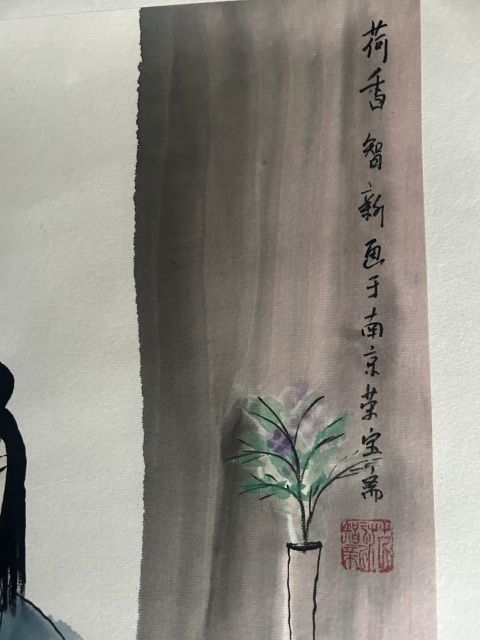 荷香 智新画于南京荣宝斋